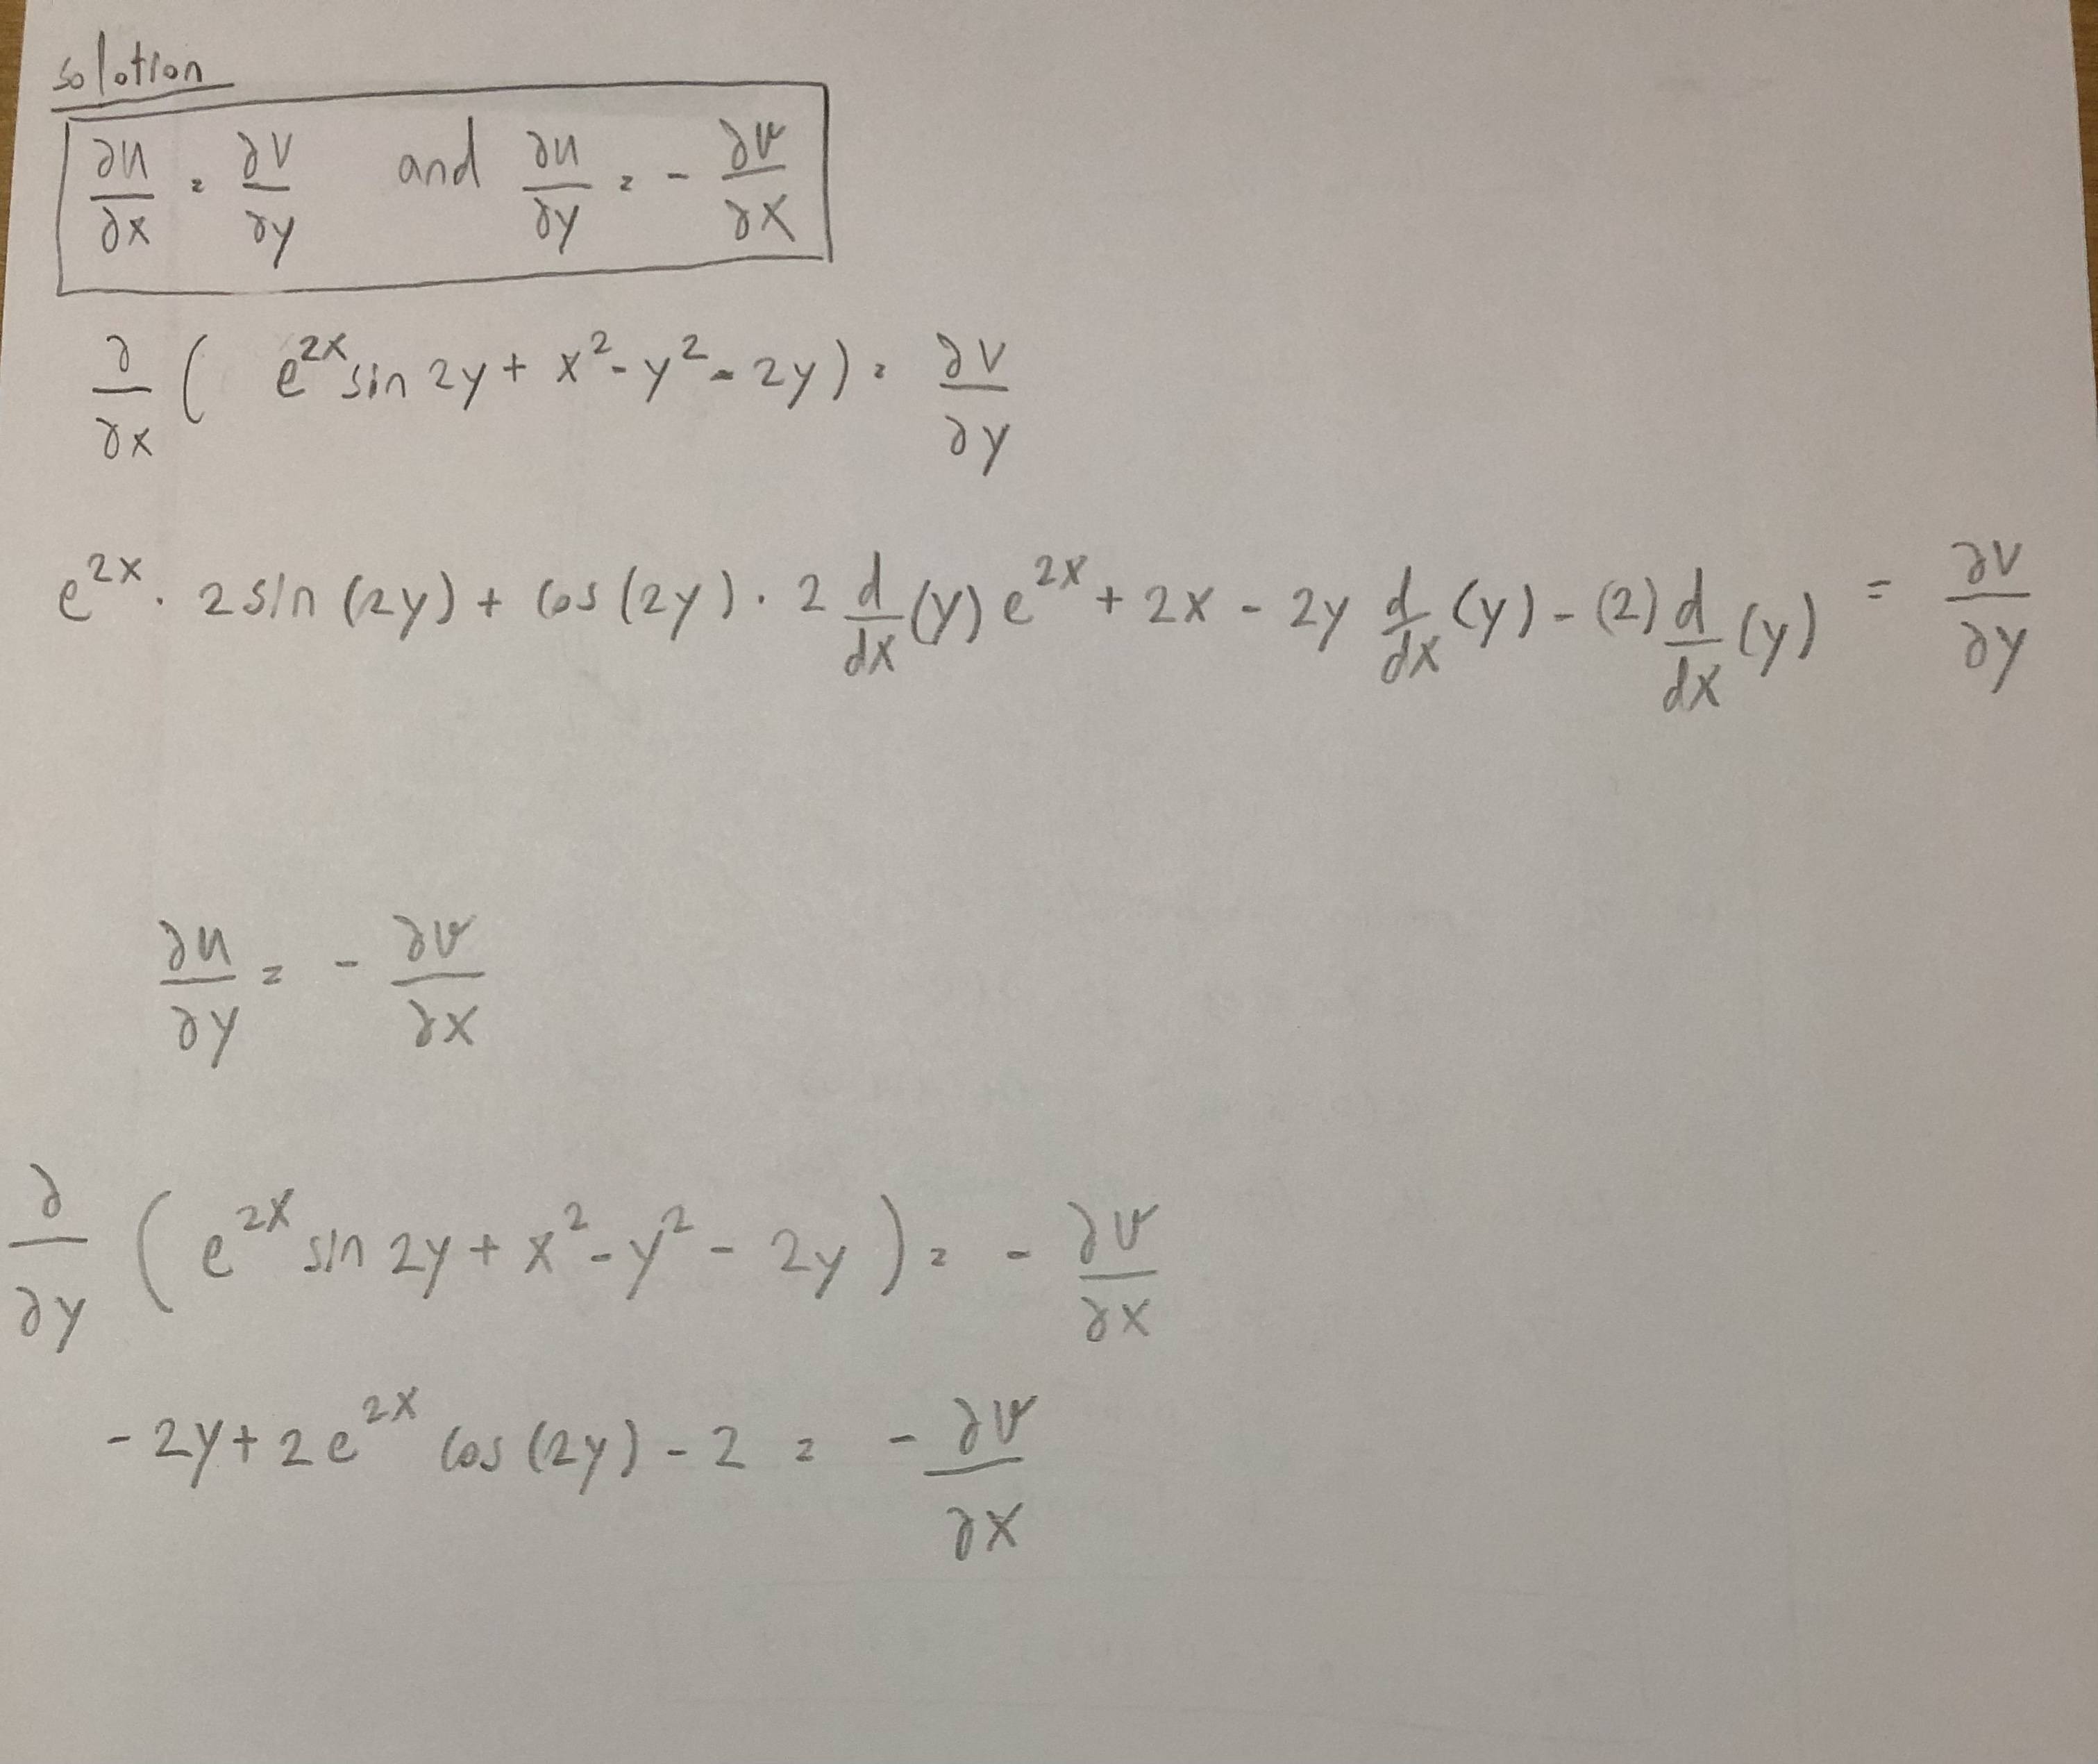 solution
∂u/∂x = ∂v/∂y and ∂u/∂y = - ∂v/∂x
∂/∂x ( e^2x sin 2y + x^2 - y^2 - 2y ) = ∂v/∂y
e^2x · 2 sin (2y) + cos (2y) · 2 d/dx (y) e^2x + 2x - 2y d/dx (y) - (2) d/dx (y) = ∂v/∂y
∂u/∂y = - ∂v/∂x
∂/∂y ( e^2x sin 2y + x^2 - y^2 - 2y ) = - ∂v/∂x
- 2y + 2e^2x cos (2y) - 2 = - ∂v/∂x